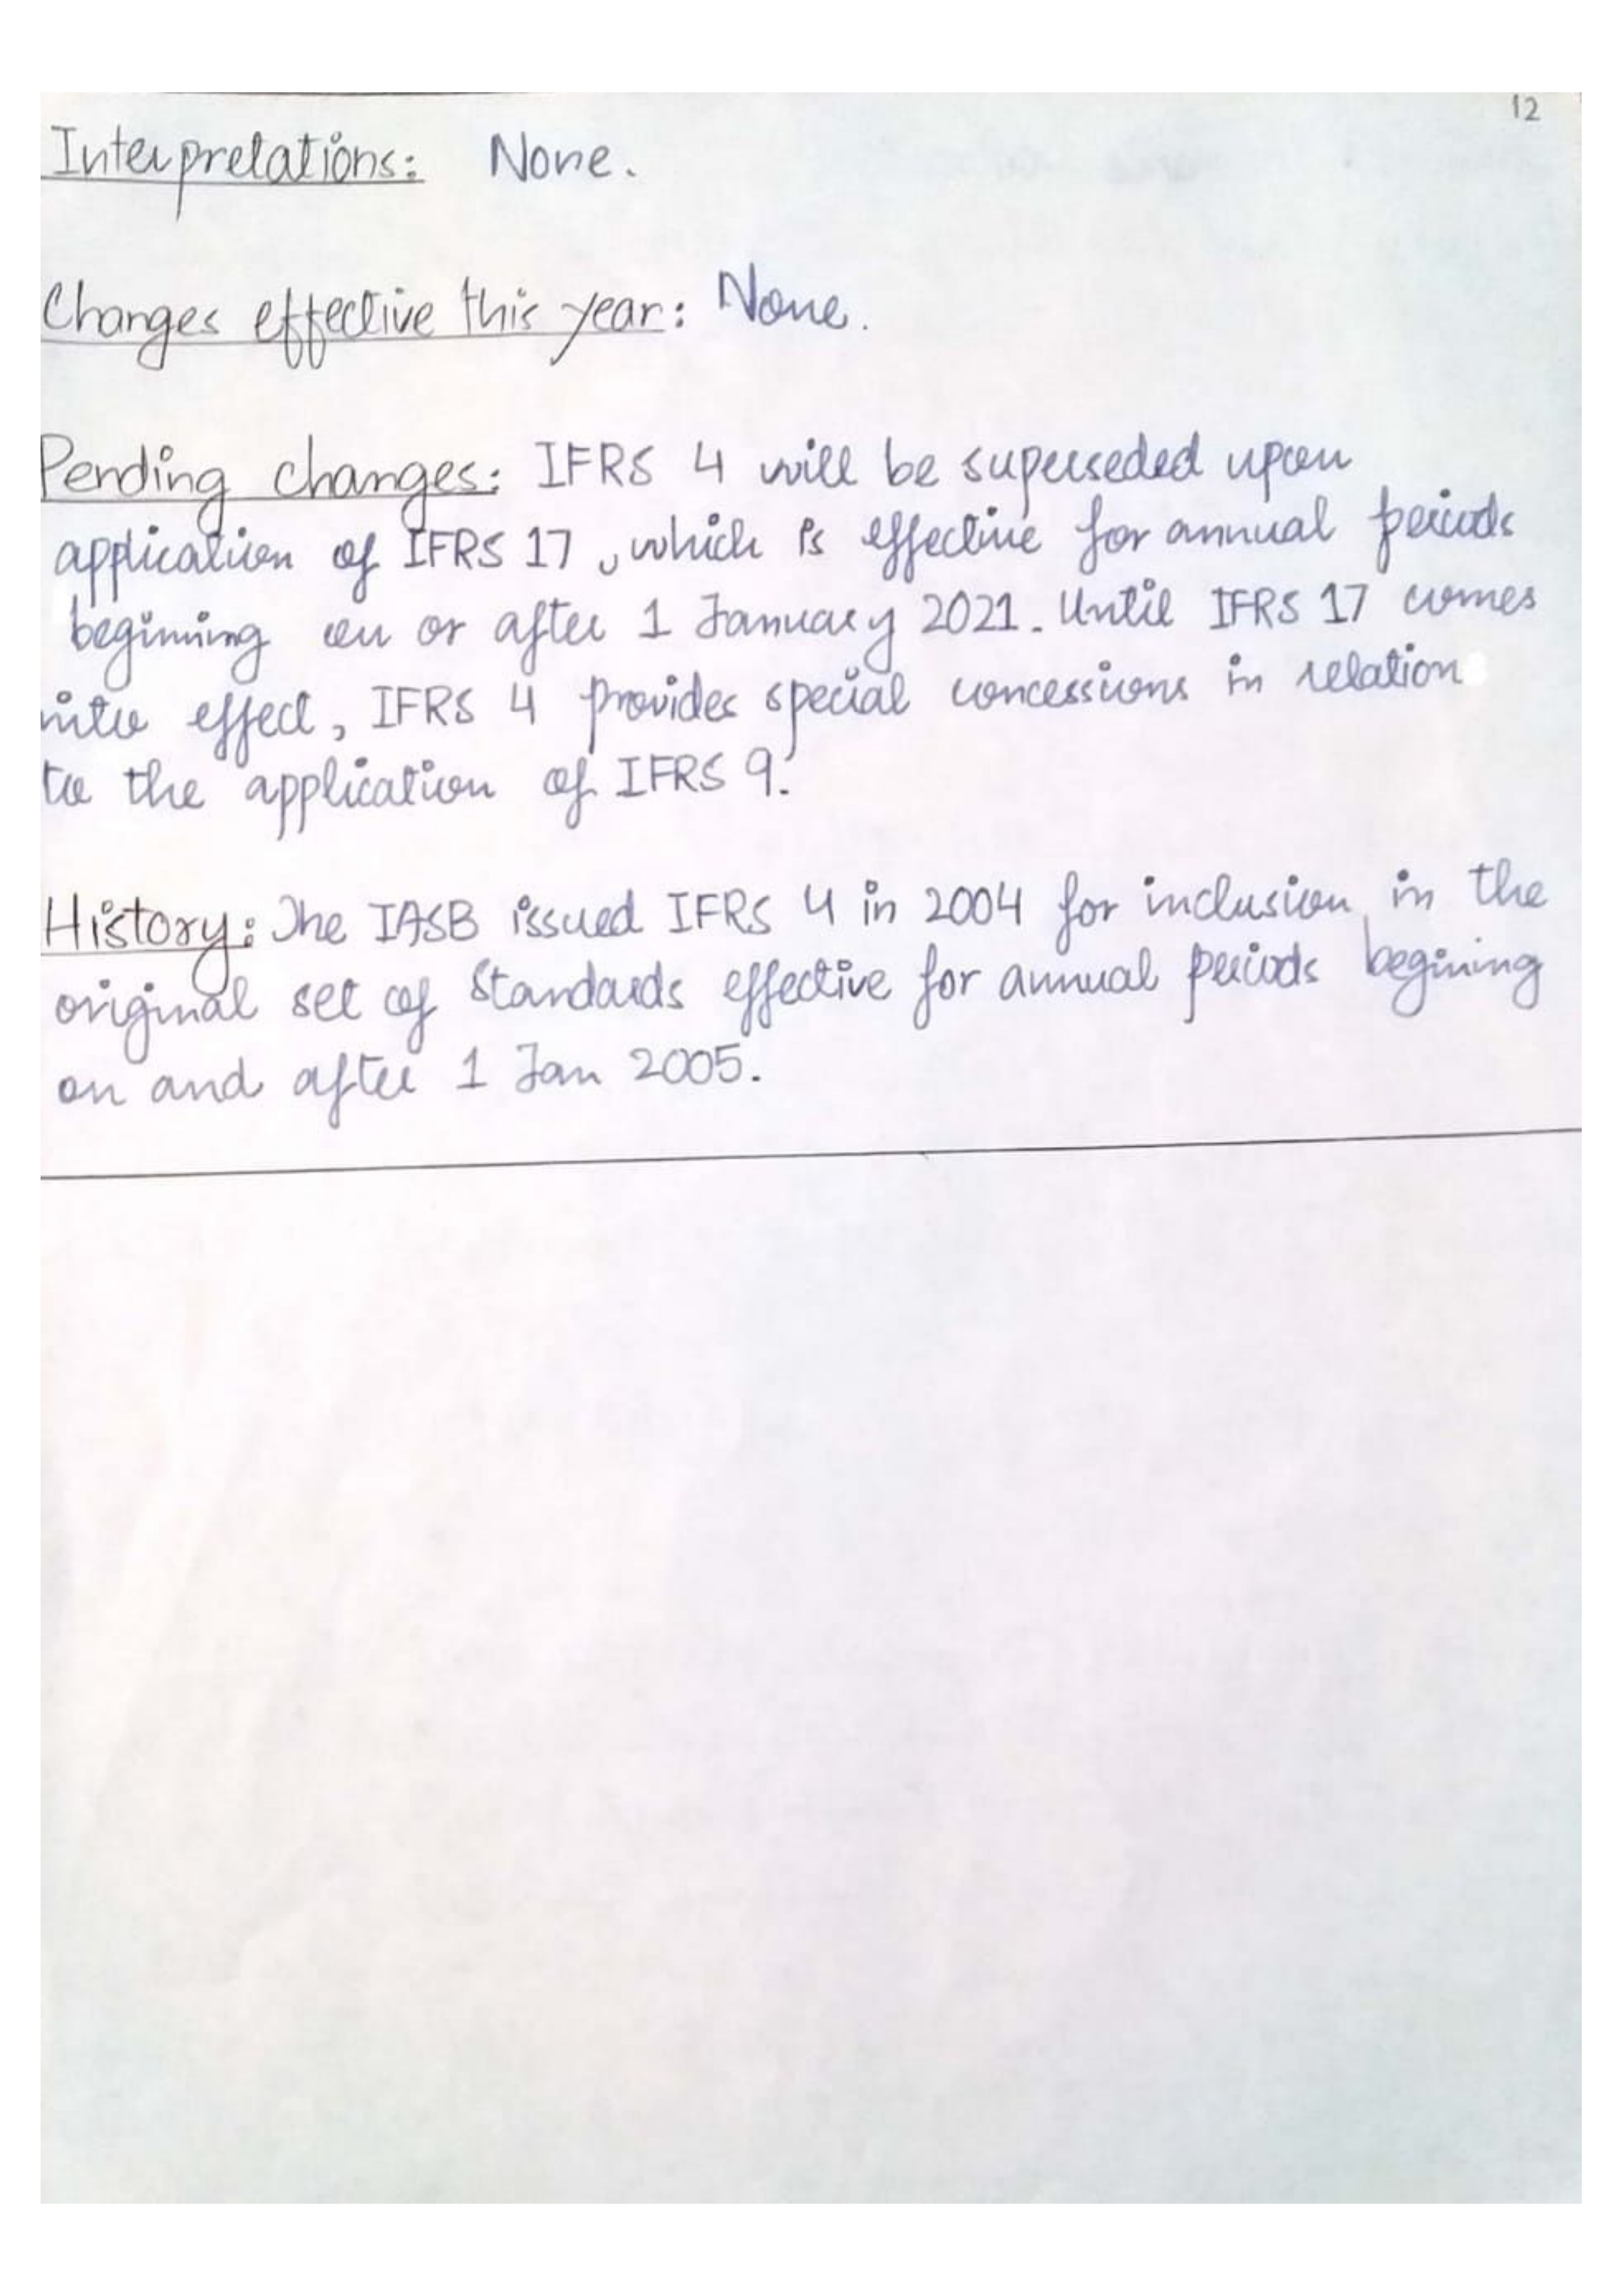 12
Interpretations: None.
Changes effective this year: None.
Pending changes: IFRS 4 will be superseded upon
application of IFRS 17, which is effective for annual periods
beginning on or after 1 January 2021. Until IFRS 17 comes
into effect, IFRS 4 provides special concessions in relation
to the application of IFRS 9.
History: The IASB issued IFRS 4 in 2004 for inclusion in the
original set of Standards effective for annual periods begining
on and after 1 Jan 2005.